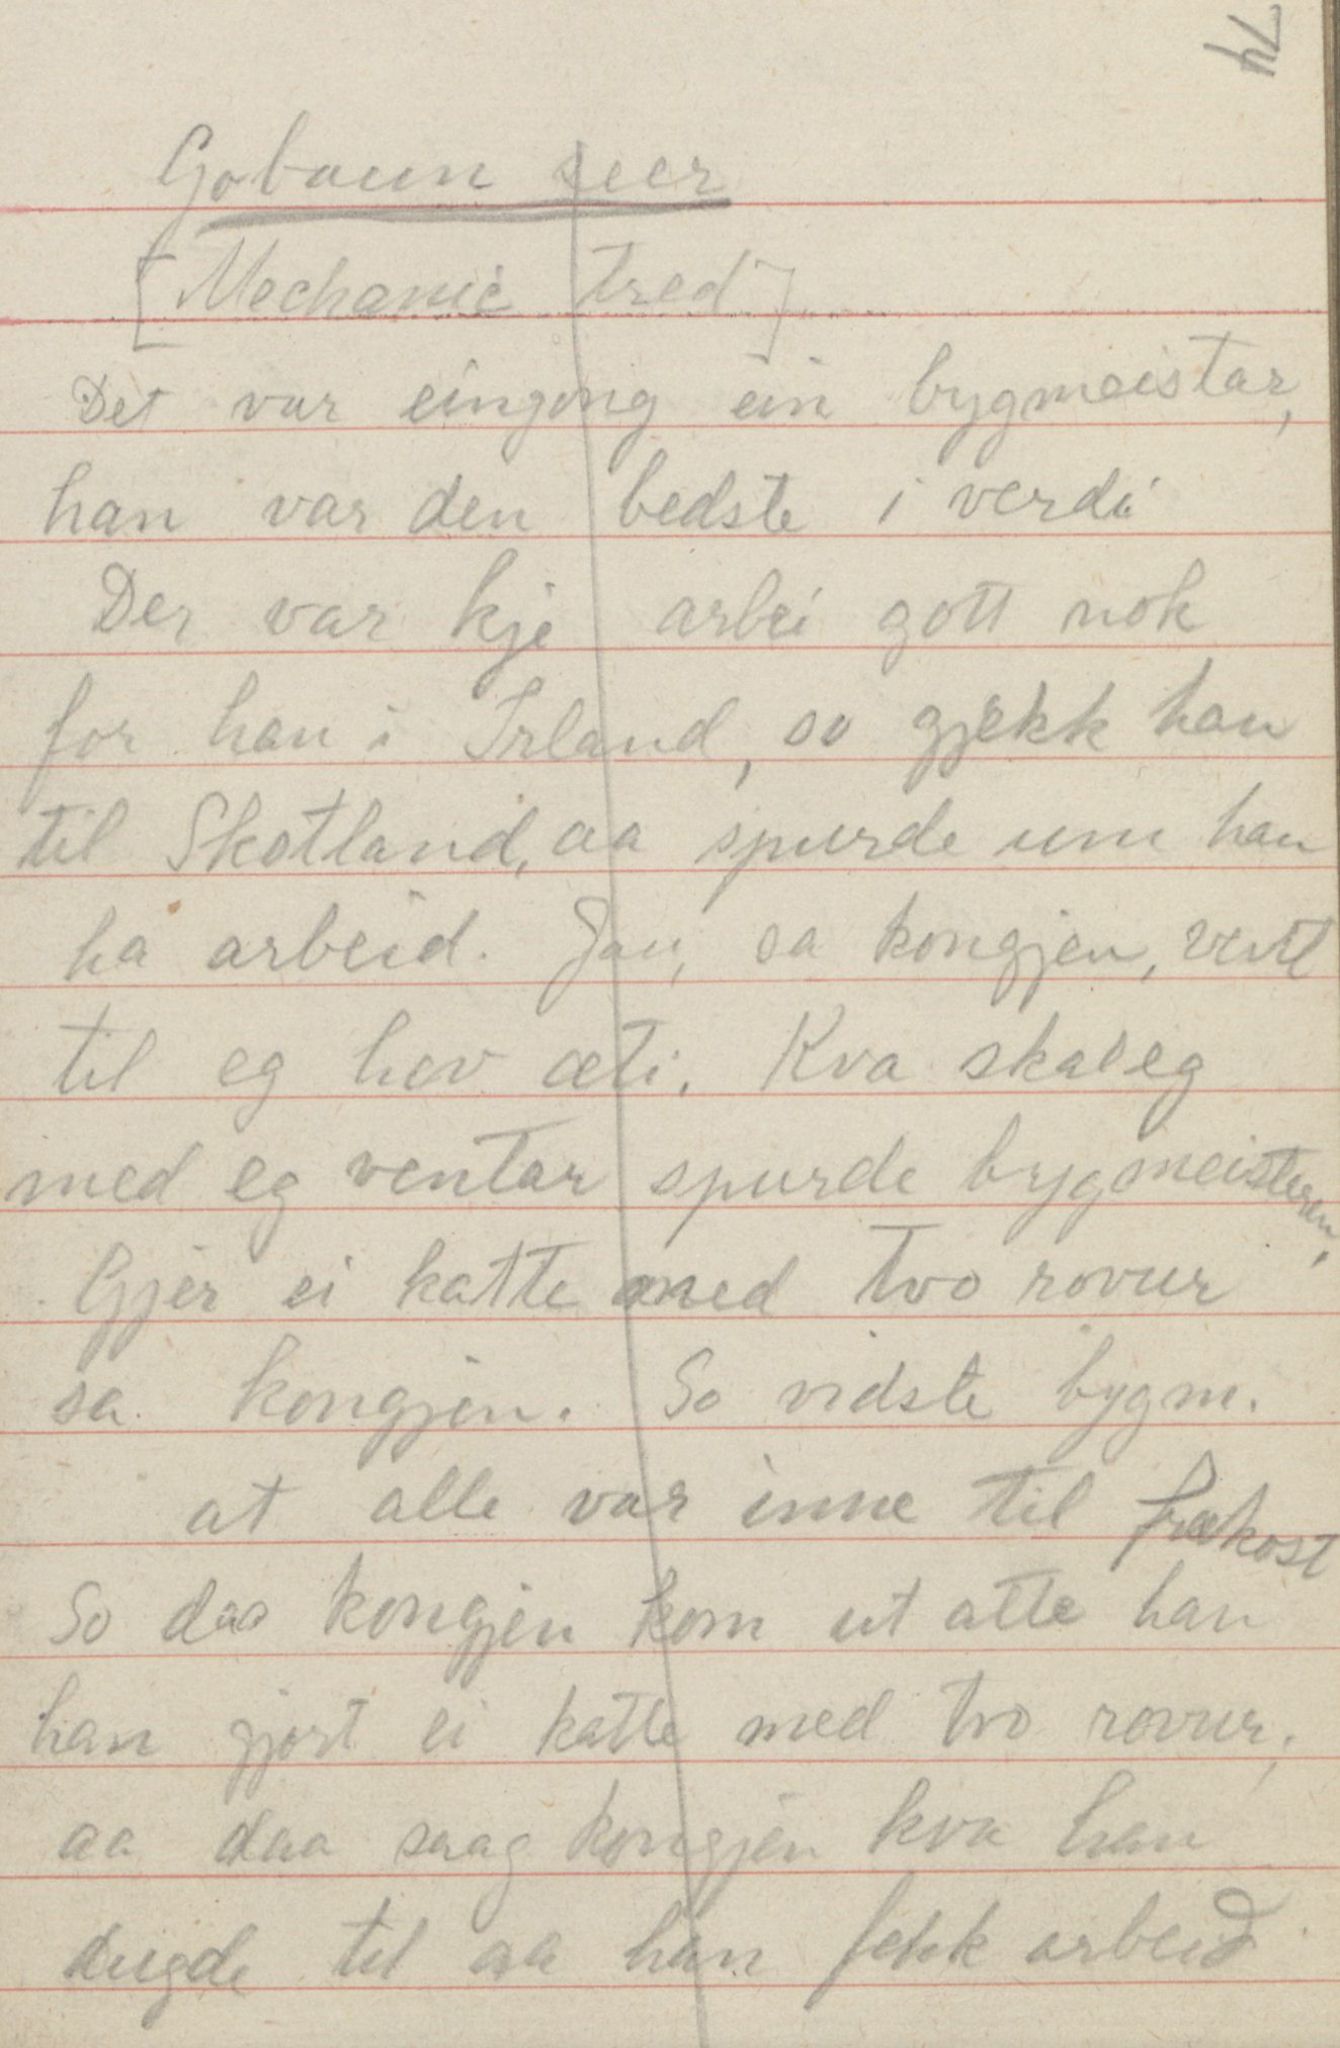 74
Gobaun seer
[Mechanic tred]
Det var eingong ein bygmeistar,
han var den bedste i verdi
Der var kje arbei gott nok
for han i Irland, so gjekk han
til Skotland, aa spurde um han
ha arbeid. Jau, sa kongjen, vent
til eg hev æti. Kva skal eg
med eg ventar spurde bygmeisteren,
Gjer ei katte med tvo rovur
sa kongjen. So vidste bygm.
at alle var inne til frukost
So daa kongjen kom ut atte han
han gjort ei katte med tvo rovur,
aa daa saag kongjen kva han
dugde til aa han fekk arbeid